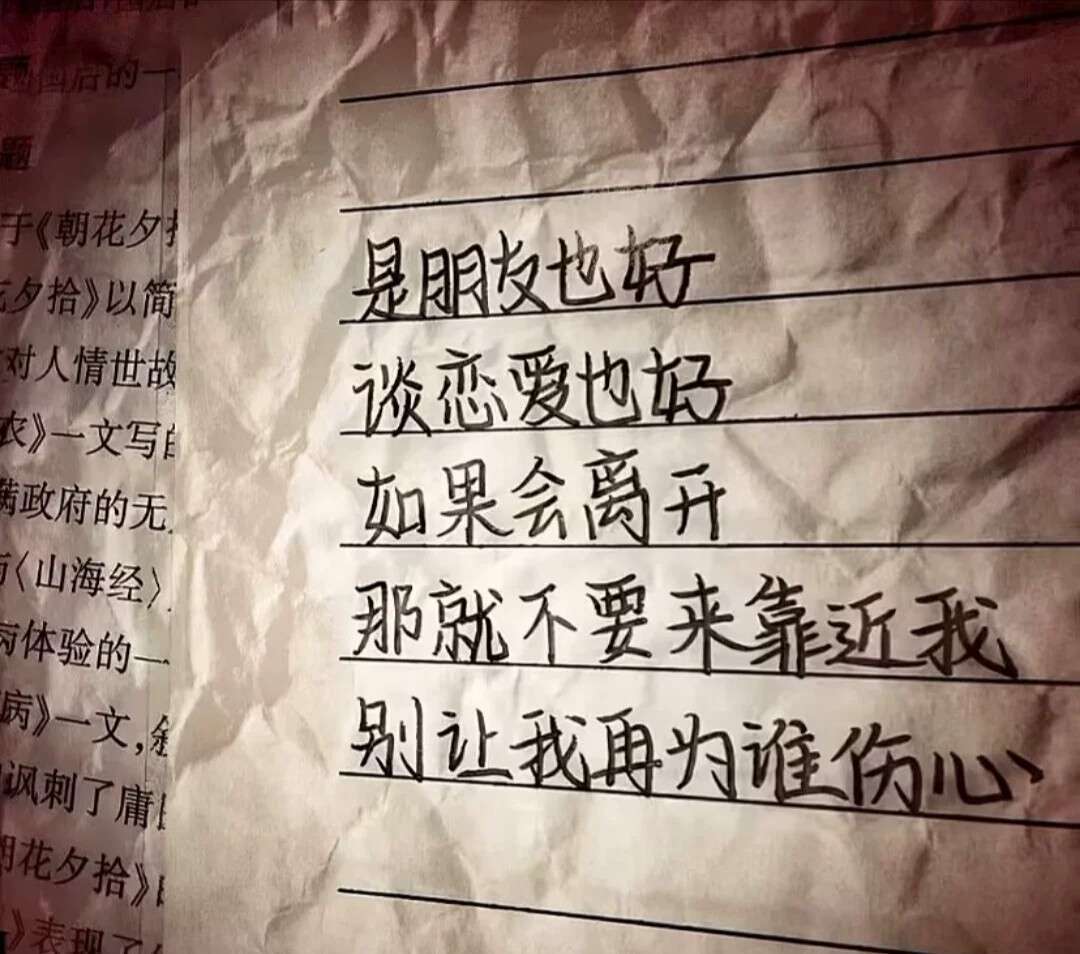 题
于《朝花夕
花夕拾》以简
对人情世故
衣》一文写的
满政府的无
《山海经》
病体验的一
病》一文,
讽刺了庸
朝花夕拾》
》表现了
是朋友也好
谈恋爱也好
如果会离开
那就不要来靠近我
别让我再为谁伤心